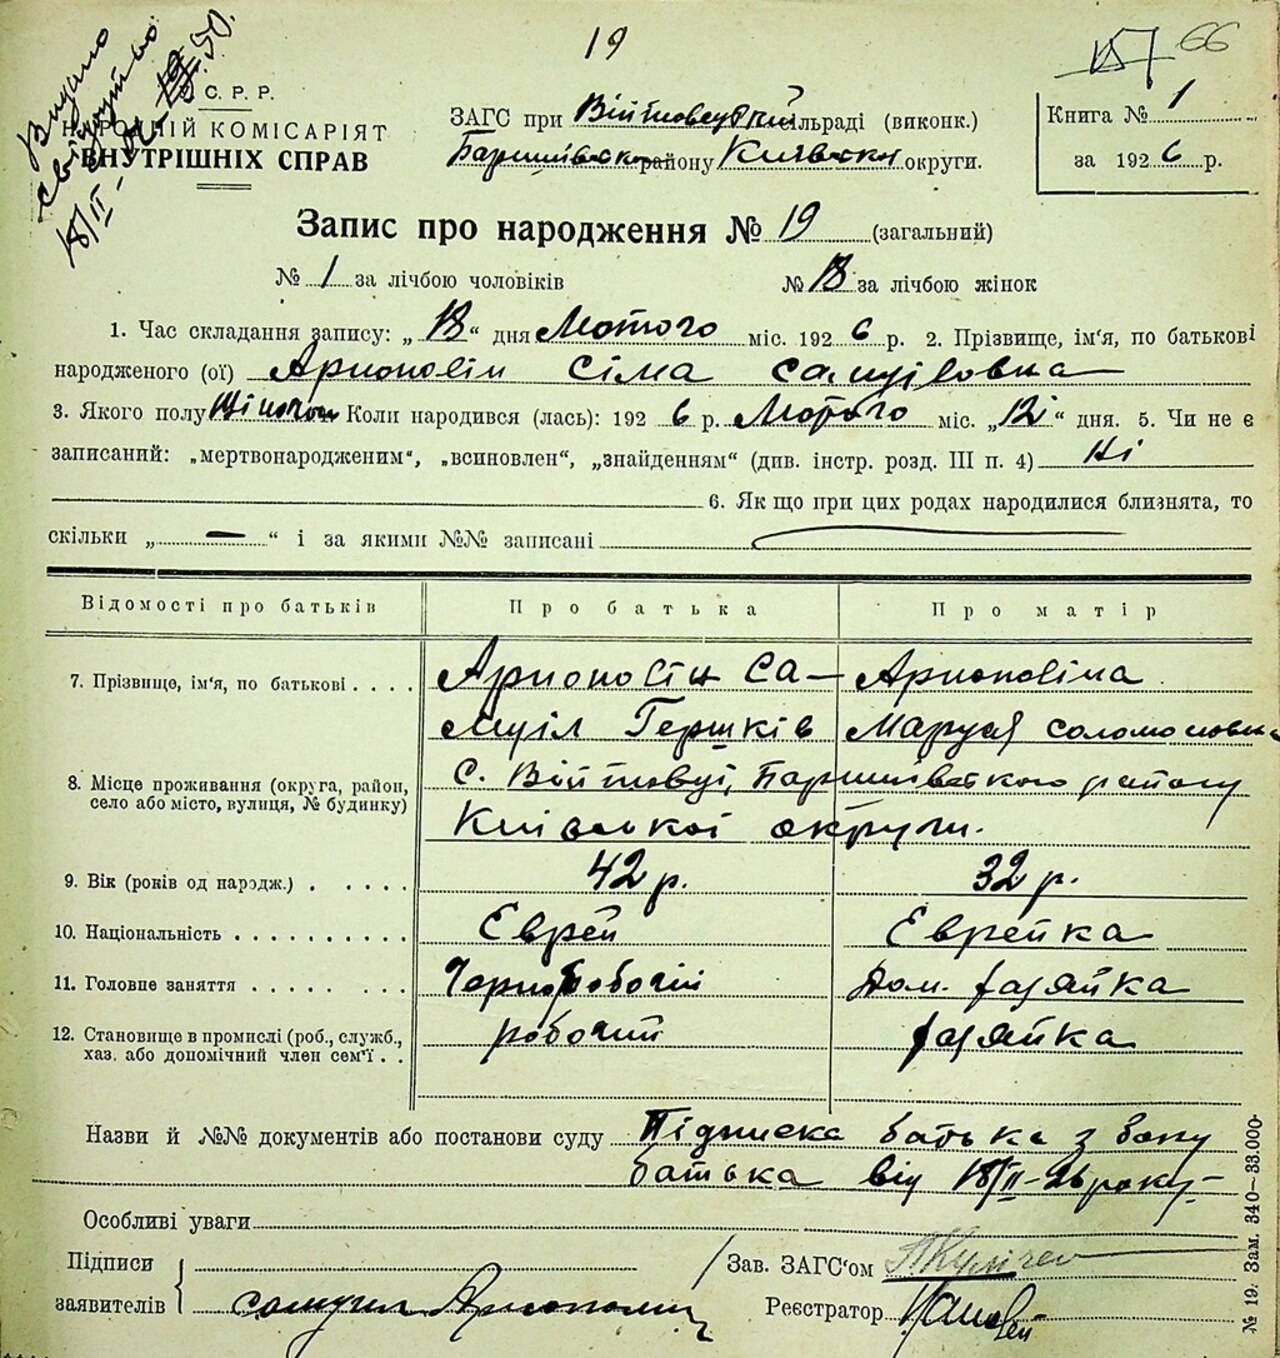 19
66
Видано
свідоцтво
18/II-
С. Р. Р.
НАРОДНІЙ КОМІСАРІЯТ
ВНУТРІШНІХ СПРАВ
ЗАГС при Війтовецькій сільраді (виконк.)
Баришівськ району Київськ округи.
Книга № 1
за 1926 р.
Запис про народження № 19 (загальний)
№ 1 за лічбою чоловіків № 18 за лічбою жінок
1. Час складання запису: „18“ дня Лютого міс. 1926 р. 2. Прізвище, ім‘я, по батькові
народженого (ої) Арионолін Сіма Самуіловна
3. Якого полу Жіночого Коли народився (лась): 1926 р. Лютого міс. „12“ дня. 5. Чи не є
записаний: „мертвонародженим“, „всиновлен“, „знайденням“ (див. інстр. розд. III п. 4) Ні
6. Як що при цих родах народилися близнята, то
скільки „—“ і за якими №№ записані
Відомості про батьків Про батька Про матір
7. Прізвище, ім‘я, по батькові . . . . Арионолін Са- Арионоліна
муіл Гершків Маруся Соломоновна
8. Місце проживання (округа, район,
село або місто, вулиця, № будинку)
С. Війтовці, Баришівського району
Київської округи.
9. Вік (років од народж.) . . . . . 42 р. 32 р.
10. Національність . . . . . . . . . . Еврей Еврейка
11. Головне заняття . . . . . . . . Чорноробочій Дом. хазяйка
12. Становище в промислі (роб., служб.,
хаз. або допомічний член сем‘ї . . робочий хазяйка
Назви й №№ документів або постанови суду Підписка батька з боку
батька від 18/II-26 року
Особливі уваги
Підписи
заявителів
Самуил Арионолин
Зав. ЗАГС‘ом
Реєстратор
№ 19. Зам. 340—33.000